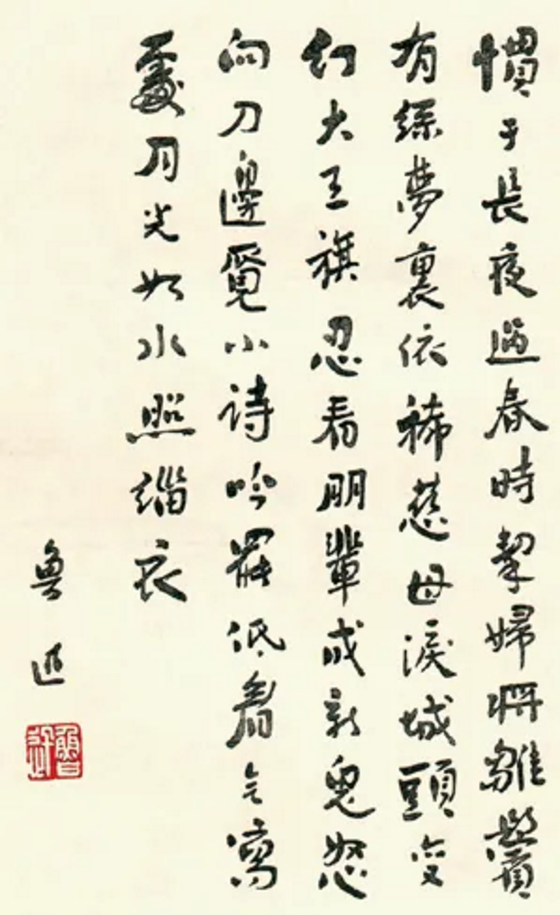 慣于長夜過春時挈婦將雛鬢
有絲夢裏依稀慈母淚城頭变
幻大王旗忍看朋輩成新鬼怒
向刀邊覓小詩吟罷低眉无寫
處月光如水照緇衣
魯迅
魯迅